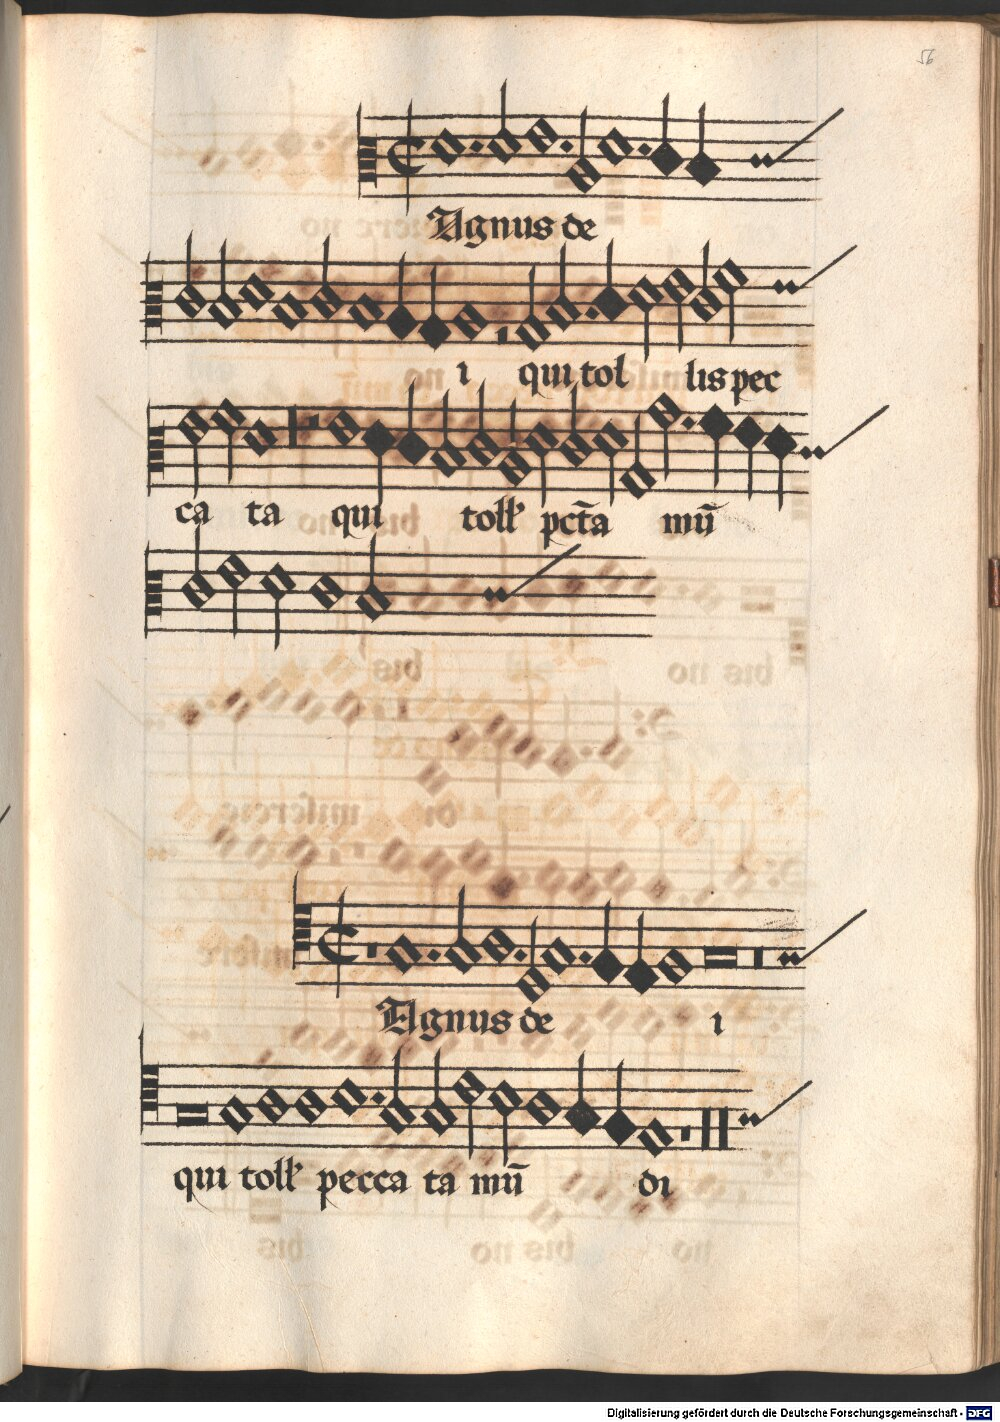 56
Agnus de
i qui tol lis pec
ca ta qui toll pct̄a mū
Agnus de i
qui toll pecca ta mū di
Digitalisierung gefördert durch die Deutsche Forschungsgemeinschaft - DFG